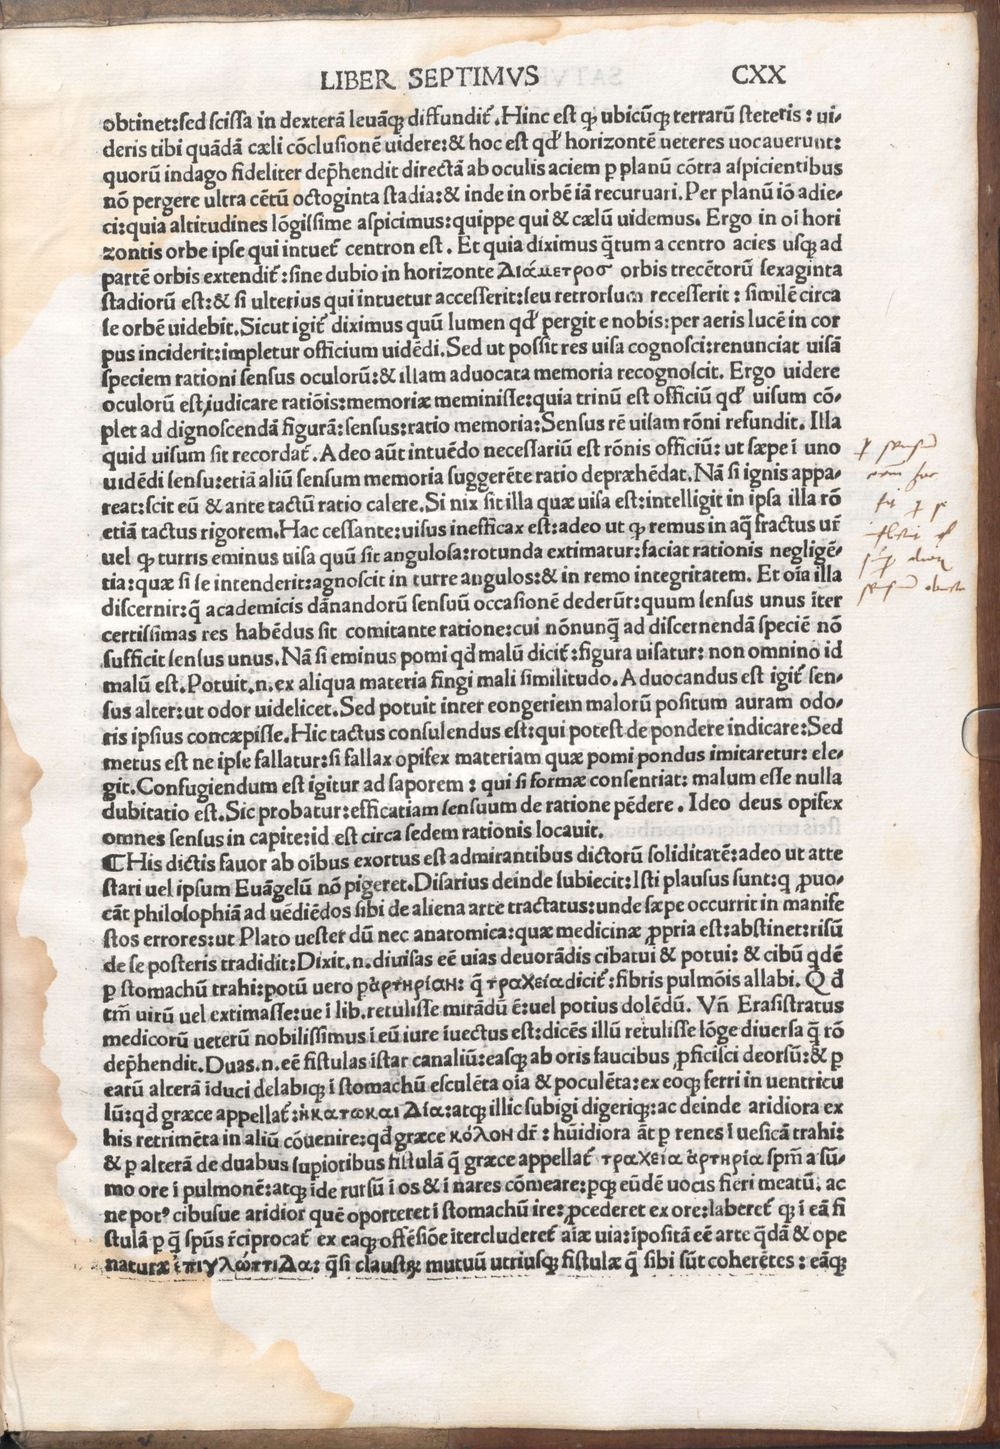 LIBER SEPTIMVS CXX
obtinet:sed scissa in dexterā leuāq; diffundit̃. Hinc est ꝙ ubicūq; terrarū steteris : ui-
deris tibi quādā cæli cōclusionē uidere:& hoc est qđ horizontē ueteres uocauerunt:
quorū indago fideliter dep̃hendit directā ab oculis aciem p planū cōtra aspicientibus
nō pergere ultra cētū octoginta stadia:& inde in orbē iā recuruari. Per planū iō adie-
ci:quia altitudines lōgissime aspicimus:quippe qui & cælū uidemus. Ergo in oī hori
zontis orbe ipse qui intuet̃ centron est. Et quia diximus q̄tum a centro acies usq; ad
partē orbis extendit̃:sine dubio in horizonte Διάμετροσ orbis trecētorū sexaginta
stadiorū est:& si ulterius qui intuetur accesserit:seu retrorsum recesserit : similē circa
se orbē uidebit. Sicut igit̃ diximus quū lumen qđ pergit e nobis:per aeris lucē in cor
pus inciderit:impletur officium uidēdi. Sed ut possit res uisa cognosci:renunciat uisā
speciem rationi sensus oculorū:& illam aduocata memoria recognoscit. Ergo uidere
oculorū est,iudicare ratiōis:memoriæ meminisse:quia trinū est officiū qđ uisum cō-
plet ad dignoscendā figurā:sensus:ratio memoria:Sensus rē uisam rōni refundit. Illa
quid uisum sit recordat̃. Adeo aūt intuēdo necessariū est rōnis officiū: ut sæpe ī uno
uidēdi sensu:etiā aliū sensum memoria suggerēte ratio depræhēdat. Nā si ignis appa-
reat:scit eū & ante tactū ratio calere. Si nix sit illa quæ uisa est:intelligit in ipsa illa rō
etiā tactus rigorem. Hac cessante:uisus inefficax est:adeo ut ꝙ remus in aq̄ fractus ur̃
uel ꝙ turris eminus uisa quū sit angulosa:rotunda extimatur:faciat rationis negligē-
tia:quæ si se intenderit:agnoscit in turre angulos:& in remo integritatem. Et oīa illa
discernit:q̄ academicis dānandorū sensuū occasionē dederūt:quum sensus unus īter
certissimas res habēdus sit comitante ratione:cui nōnunq̄ ad discernendā speciē nō
sufficit sensus unus. Nā si eminus pomi qđ malū dicit̃:figura uisatur: non omnino id
malū est. Potuit .n. ex aliqua materia fingi mali similitudo. Aduocandus est igit̃ sen-
sus alter:ut odor uidelicet. Sed potuit inter congeriem malorū positum auram odo-
ris ipsius concæpisse. Hic tactus consulendus est:qui potest de pondere indicare:Sed
metus est ne ipse fallatur:si fallax opifex materiam quæ pomi pondus imitaretur: ele-
git. Confugiendum est igitur ad saporem : qui si formæ consentiat: malum esse nulla
dubitatio est. Sic probatur:efficatiam sensuum de ratione pēdere . Ideo deus opifex
omnes sensus in capite:id est circa sedem rationis locauit.
¶His dictis fauor ab oībus exortus est admirantibus dictorū soliditatē:adeo ut atte
stari uel ipsum Euāgelū nō pigeret. Disarius deinde subiecit:Isti plausus sunt:q ꝓuo-
cāt philosophiā ad uēdiēdos sibi de aliena arte tractatus:unde sæpe occurrit in manife
stos errores:ut Plato uester dū nec anatomica:quæ medicinæ ꝓpria est:abstinet:risū
de se posteris tradidit:Dixit .n. diuisas eē uias deuorādis cibatui & potui: & cibū qdē
p stomachū trahi:potū uero p ἀρτηρίαν: q̄ τραχεία dicit̃:fibris pulmōis allabi. Q đ
tm̄ uirū uel extimasse:ue ī lib. retulisse mirādū ē:uel potius dolēdū. Vn̄ Erasistratus
medicorū ueterū nobilissimus ī eū iure īuectus est:dicēs illū retulisse lōge diuersa q̄ rō
dep̃hendit. Duas .n. eē fistulas īstar canaliū:easq; ab oris faucibus ꝓficisci deorsū:& p
earū alterā īduci delabiq; ī stomachū esculēta oīa & poculēta:ex eoq; ferri in uentricu
lū:qđ græce appellat̃:ἡ κατωκαι Δία:atq; illic subigi digeriq;:ac deinde aridiora ex
his retrimēta in aliū cōuenire:qđ græce κόλον dr̃ : hūidiora āt p renes ī uesicā trahi:
& p alterā de duabus supioribus fistulā q̄ græce appellat̃ τραχεία ἀρτηρία spm̄ a sū-
mo ore ī pulmonē:atq; īde rursū ī os & ī nares cōmeare:pq; eūdē uocis fieri meatū. ac
ne potꝰ cibusue aridior quē oporteret ī stomachū ire:ꝓcederet ex ore:laberet̃ q; ī eā fi
stulā p q̄ spūs r̄ciprocat̃ ex eaq; offēsiōe itercluderet̃ aīæ uia:īpositā eē arte q̄dā & ope
naturæ ἐπιγλώττιΔα: q̄si claustr̃ mutuū utriusq; fistulæ q̄ sibi sūt coherētes : eāq;